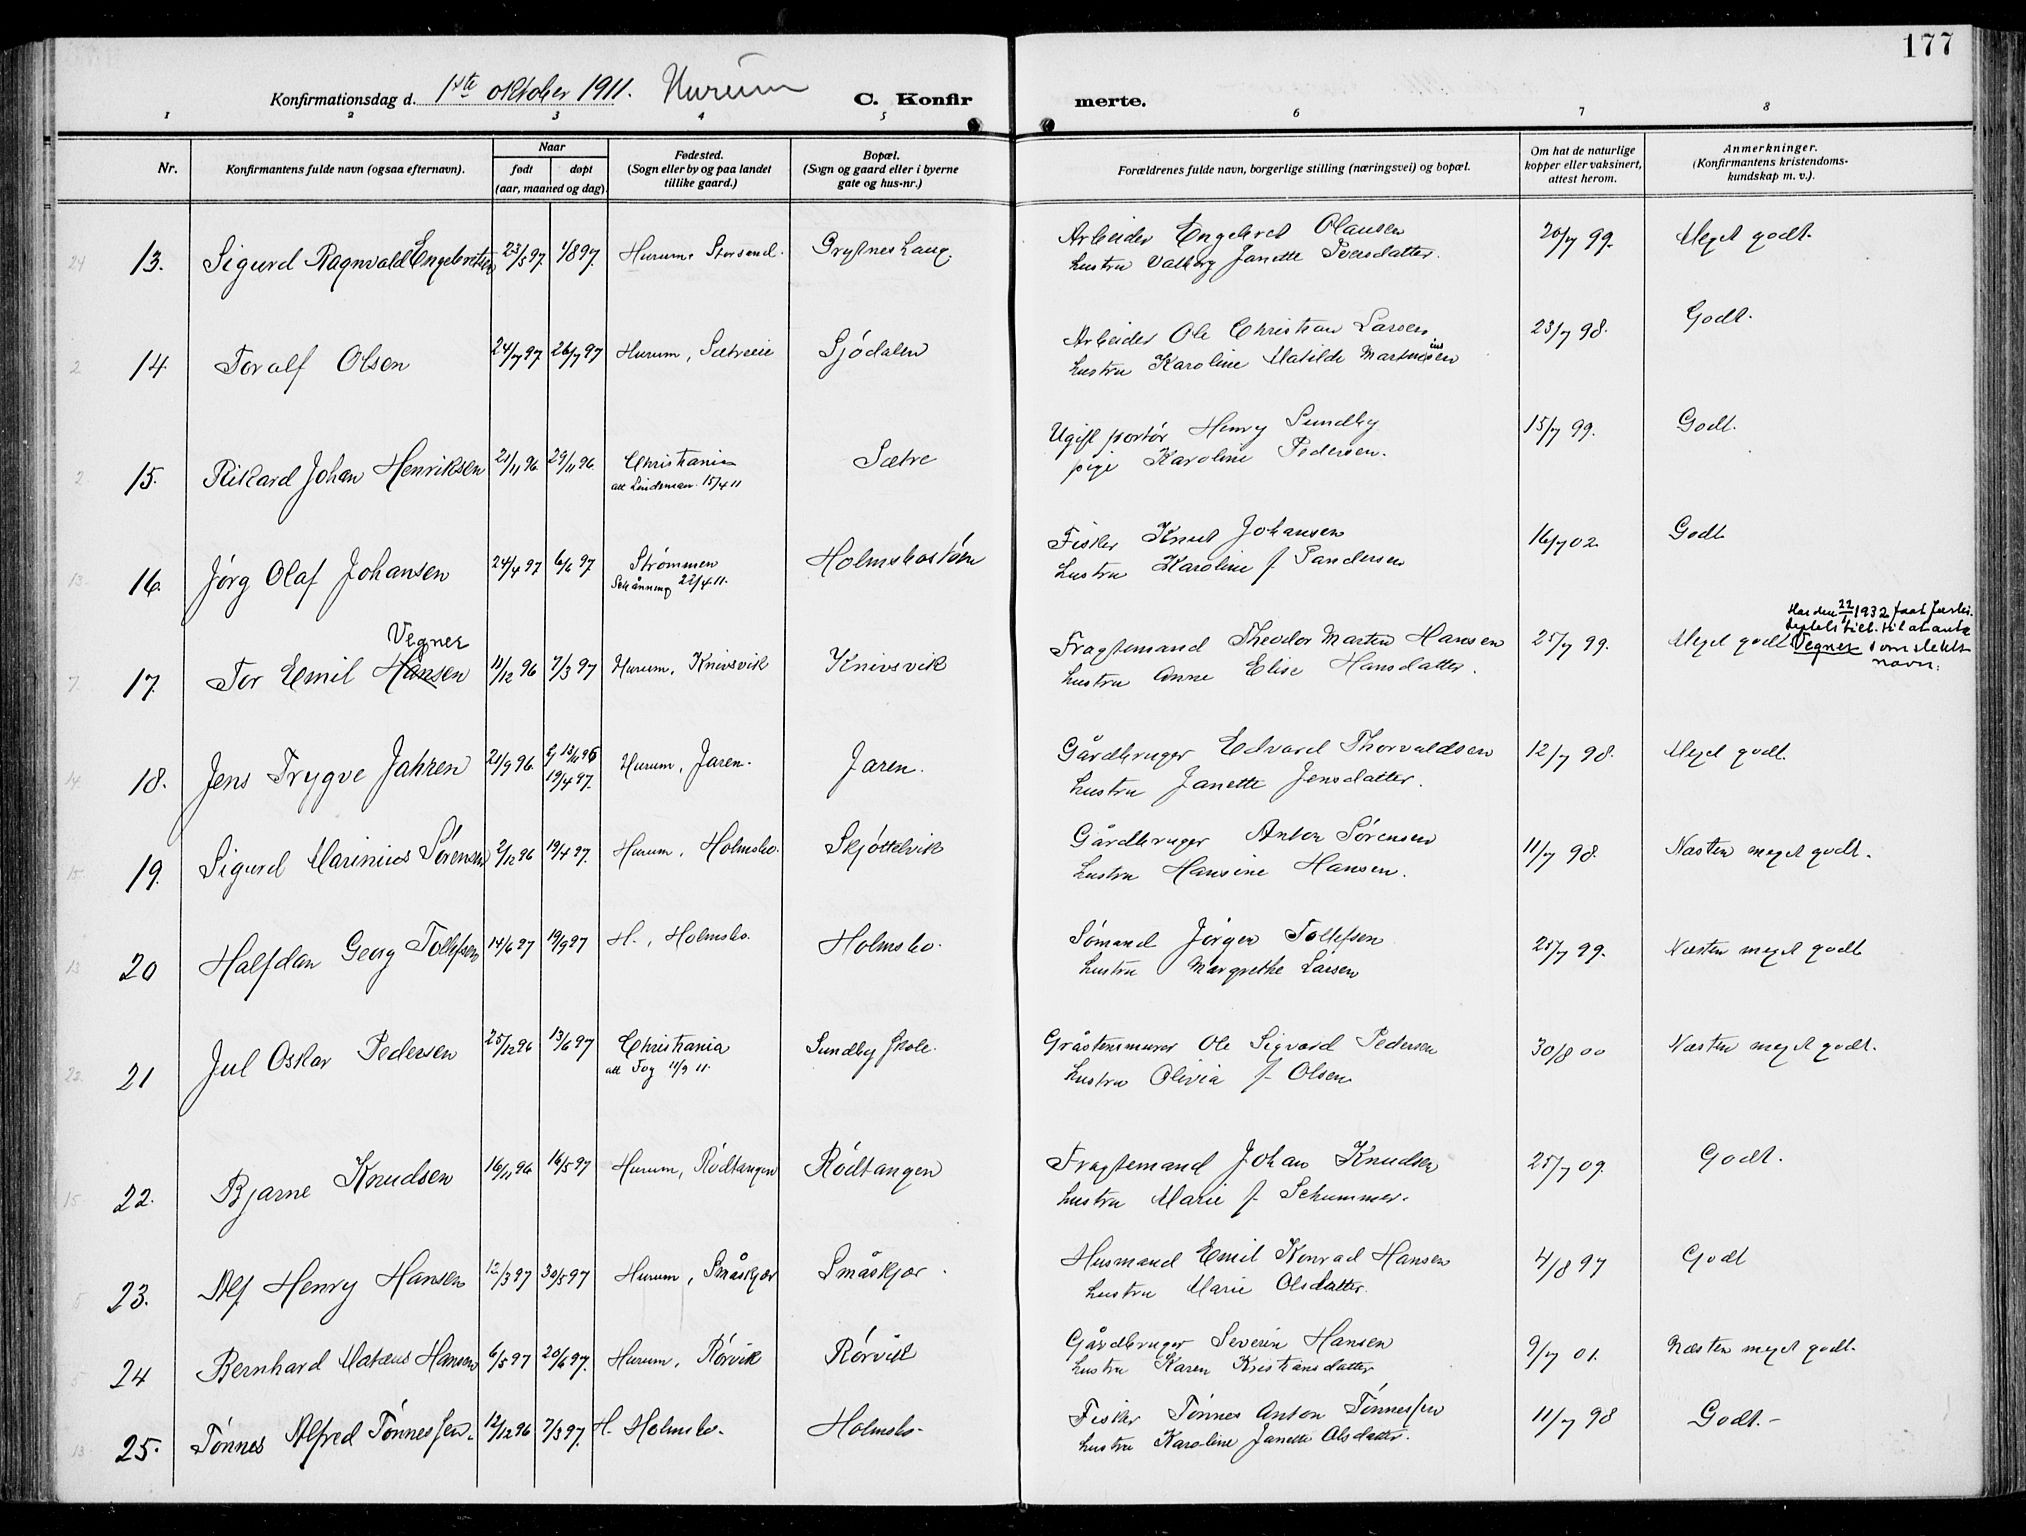 177
Konfirmationsdag d. 1ste oktober 1911. Hurum C. Konfirmerte.
1 2 3 4 5 6 7 8
Nr. Konfirmantens fulde navn (ogsaa efternavn). Naar født døpt (aar, maaned og dag). Fødested. (Sogn eller by og paa landet tillike gaard.) Bopæl. (Sogn og gaard eller i byerne gate og hus-nr.) Forældrenes fulde navn, borgerlige stilling (næringsvei) og bopæl. Om hat de naturlige kopper eller vaksinert, attest herom. Anmerkninger. (Konfirmantens kristendomskundskap m. v.).
24 13. Sigurd Ragnvald Engebretsen 23/5 97. 1/8 97. Hurum, Storsand. Grytnes Arbeider Engebret Olausen 20/7 99. Meget godt.
hustru Valborg Janette
2 14. Toralf Olsen 24/7 97 26/7 97 Hurum, Sætreeie Sjødalen Arbeider Ole Christian Larsen 23/7 98. Godt.
hustru Karoline Matilde
2 15. Rikard Johan Henriksen 21/11 96 29/11 96. Christiania Sætre Ugift portør Henry Sundby 15/7 99. Godt.
att Lindeman 15/4 11 pige Karoline Pedersen.
13. 16. Jørg Olaf Johansen 24/4 97 6/6 97. Strømmen Fisker Knut Johansen 16/7 02. Godt
22/4 11. hustru Karoline f. Sandersen
Vegner
7 17. Tor Emil Hansen 11/12 96 7/3 97 Hurum, Knivsvik Knivsvik Fragtemand Theodor Marten Hansen 25/7 99. Meget godt
hustru Anne Elise Hansdatter.
Har den 22/1 1932 faat
til at anta
Vegner som slekts
navn.
14 18. Jens Trygve Jahren 21/9 96. 13/11 96 19/4 97. Hurum, Jaren. Jaren. Gårdbruger Edvard Thorvaldsen 12/7 98. Meget godt.
hustru Janette Jensdatter.
15. 19. Sigurd Marinius Sørensen 2/12 96 19/4 97. Hurum, Holmsbo. Skjøttelvik Gårdbruger Anton Sørensen 11/7 98. Næsten meget godt.
hustru Hansine Hansen.
13 20 Halfdan Georg Tollefsen 14/6 97 19/9 97 H., Holmsbo. Holmsbo. Sømand Jørgen Tollefsen 25/7 99. Næsten meget godt
hustru Margrethe Larsen
22. 21 Jul Oskar Pedersen 25/12 96 13/6 97 Christiania Sundby skole. Gråstensmurer Ole Sigvard Pedersen 30/8 00 Næsten meget godt.
att Fog 11/9 11. hustru Olivia f. Olsen
15 22. Bjarne Knudsen 16/11 96 16/5 97 Hurum, Rødtangen Rødtangen Fragtemand Johan Knudsen 25/7 09. Godt.
hustru Marie f. Schummer.
5 23. Alf Henry Hansen 12/3 97 30/5 97 Hurum, Småskjær Småskjær. Husmand Emil Konrad Hansen 4/8 97 Godt
hustru Marie Olsdatter.
5 24 Bernhard Matæus Hansen 6/5 97 20/6 97. Hurum, Rørvik Rørvik Gårdbruger Severin Hansen 9/7 01. Næsten meget godt.
hustru Karen Kristiansdatter
13. 25. Tønnes Alfred Tønnessen. 12/12 96 7/3 97. H. Holmsbo. Holmsbo. Fisker Tønnes Anton Tønnessen 11/7 98 Godt.
hustru Karoline Janette Olsdatter.